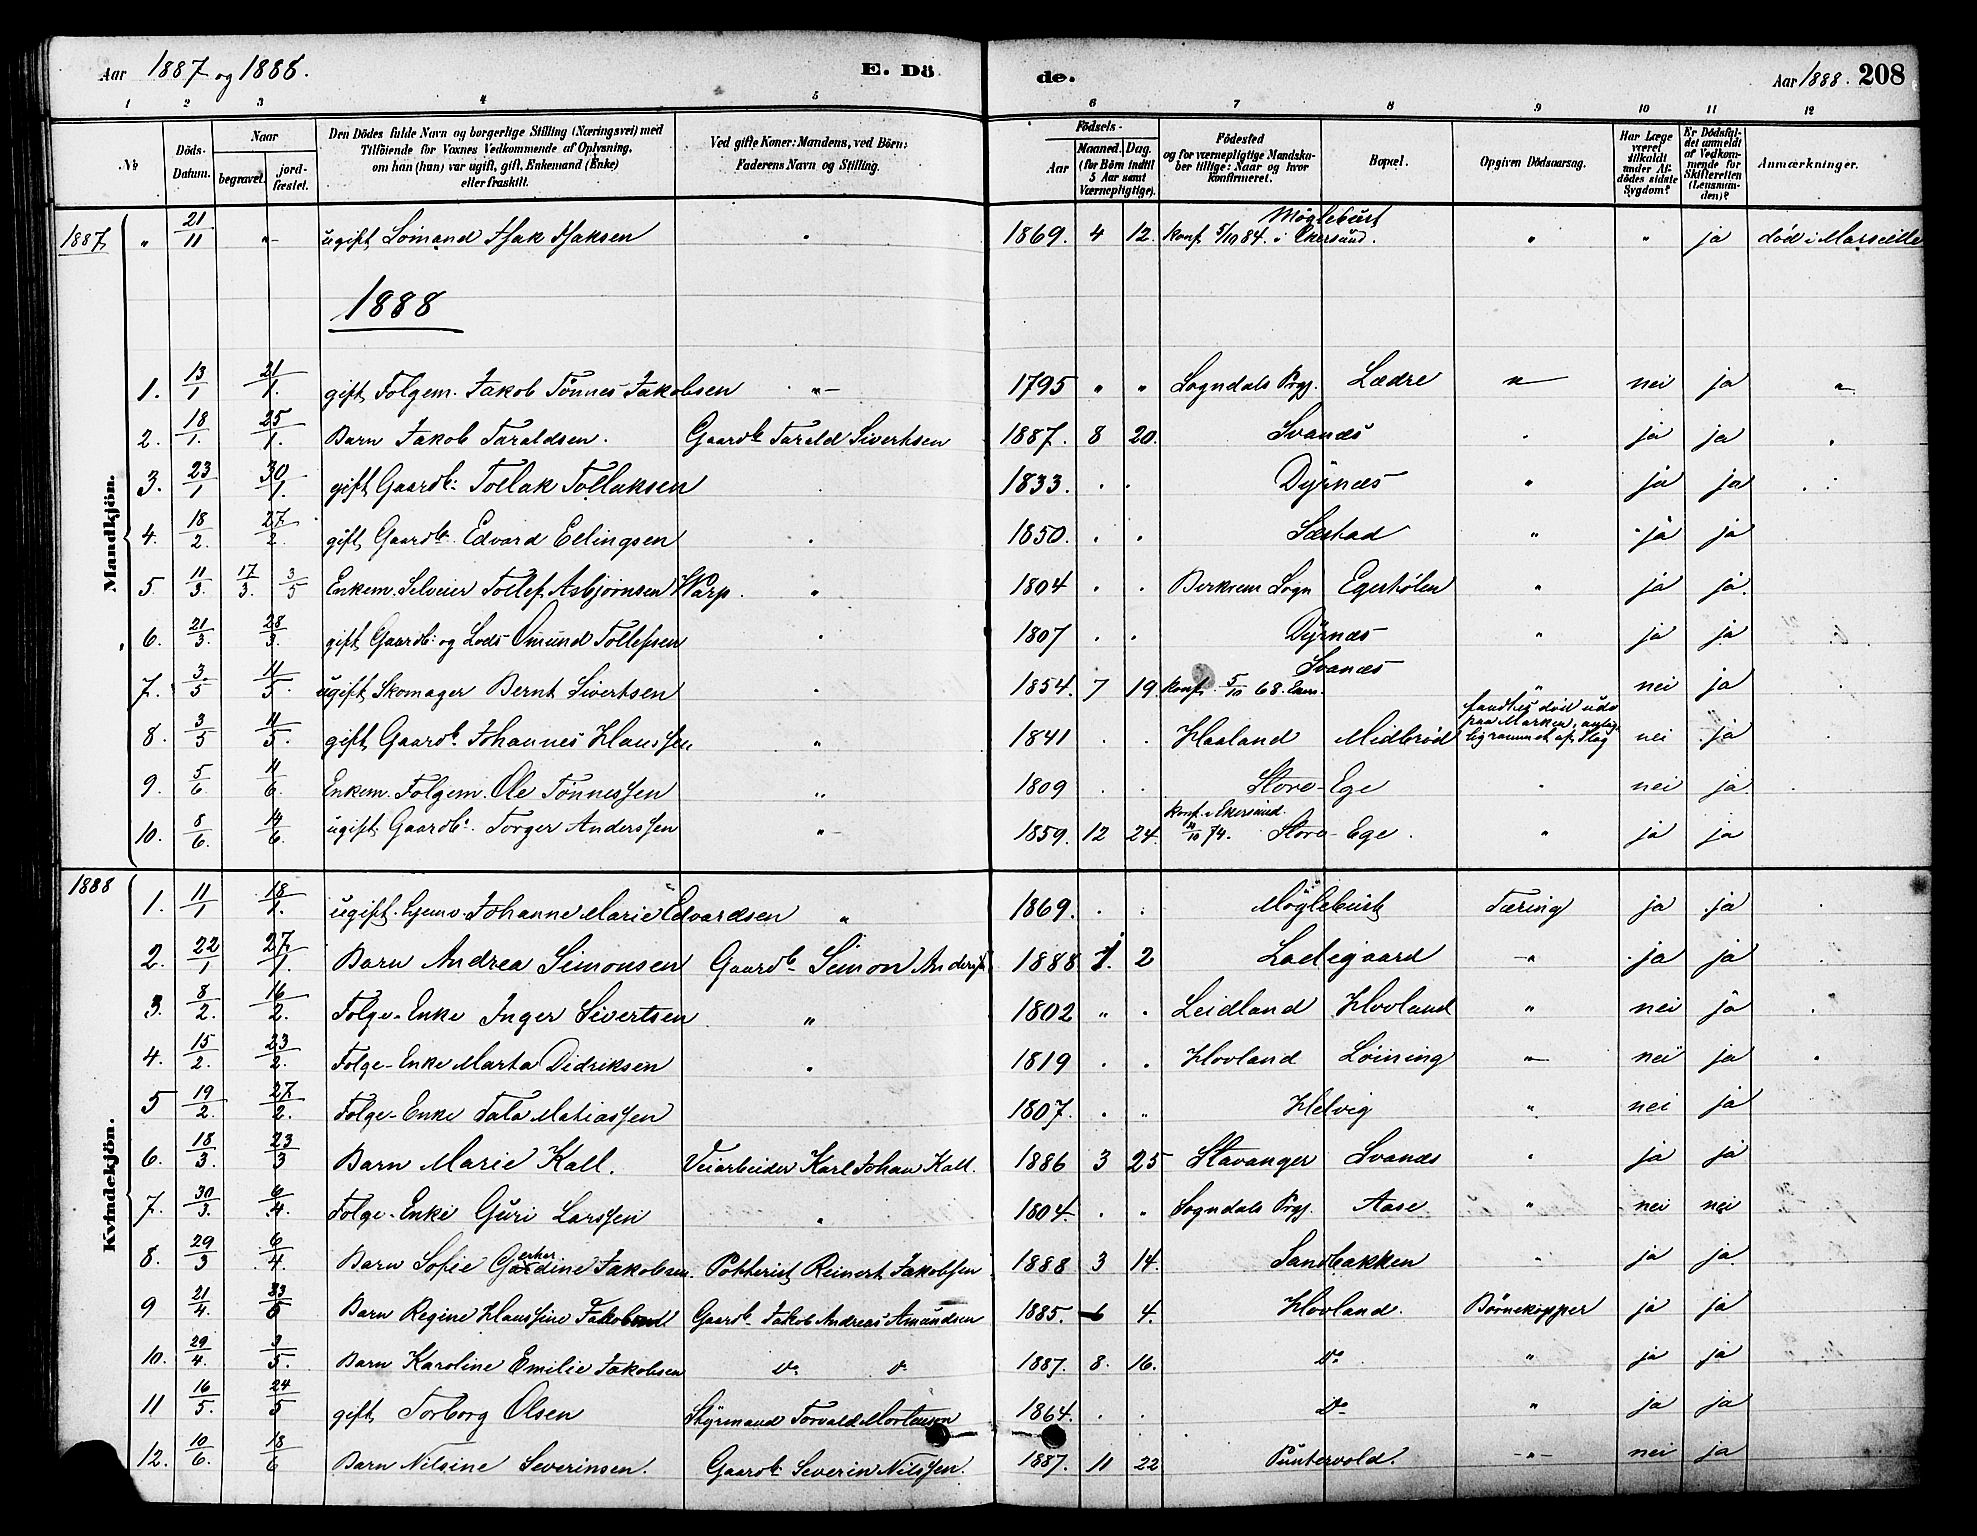 Aar 1887 og 1888. E. Dö de. Aar 1888. 208
1 2 3 4 5 6 7 8 9 10 11 12
No Döds-Datum. Naar begravet. jord-fæstet. Den Dödes fulde Navn og borgerlige Stilling (Næringsvei) med Tilföiende for Voxnes Vedkommende af Oplysning, om han (hun) var ugift, gift, Enkemand (Enke) eller fraskilt. Ved gifte Koner: Mandens, ved Börn: Faderens Navn og Stilling. Födsels- Aar Maaned. Dag. (for Börn indtil 5 Aar samt Værnepligtige). Födested og for værnepligtige Mandskaber tillige: Naar og hvor konfirmeret. Bopæl. Opgiven Dödsaarsag. Har Læge været tilkaldt under Afdödes sidste Sygdom? Er Dödsfaldet anmeldt af Vedkommende for Skifteretten (Lensmanden)? Anmærkninger.
1887 " 21/11 " ugift Loimand Isak Isaksen " 1869. 4 12. Konf. 5/10 84. i Ekersund. Möglebust " " ja död i Marseille
1888
Mandkjön.
1. 13/1 21/1. gift Folgem. Jakob Tönnes Jakobsen " 1795 " " Sogndals Prgj. Lædre " nei ja "
2. 18/1. 25/1. Barn Jakob Taraldsen. Gaardb. Tarald Sivertsen 1887. 8 20. Svanæs " ja ja "
3. 23/1 30/1. gift Gaardb: Tollak Tollaksen " 1833. " " Dyrnæs " ja ja
4. 18/2. 27/2. gift Gaardb. Edvard Erlingsen " 1850. " " Sæstad " ja ja
5. 11/3. 17/3. 3/5 Enkem. Selveier Tollef Asbjörnsen Warp. " 1804 " " Berkrem Sogn Egerhölen " ja ja.
6. 21/3. 28/3. gift Gaardb: og Lods Omund Tollefsen " 1807 " " Dyrnæs " ja ja
7. 3/5 11/5. ugift Skomager Bernt Sivertsen " 1854. 7 19. Konf. 5/10 68. Svanæs " nei ja
8. 3/5 11/5. gift Gaardb. Johannes Klaussen " 1841 " " Haaland Midbröd fandtes död ude paa Marken, rammet af Slag nei ja
9. 5/6 11/6. Enkem. Folgem. Ole Tönnessen " 1809 " " Store-Ege " nei ja
10. 8/6. 14/6. ugift Gaardb. Torger Anderssen " 1859. 12 24. Konf. i Ekersund 74. Store-Ege. " ja ja
1888
Kvindekjön.
1. 11/1 18/1. ugift Johanne Marie Edvardsen " 1869. " " Möglebust Tæring ja ja
2. 22/1 27/1. Barn Andrea Simonsen Gaardb. Simon Anders. 1888 1. 2 Ladegaard " ja ja
3. 8/2. 16/2. Folge-Enke Inger Sivertsen " 1802 " " Leidland Hovland " nei ja
4. 15/2. 23/2. Folge-Enke Marta Didriksen " 1819 " " Hovland Löining " nei ja "
5 19/2. 27/2. Folge-Enke Tala Matiassen 1807. " " Helvig " nei ja
6. 18/3. 23/3 Barn Marie Kall. Veiarbeider Karl Johan Kall. 1886 3 25 Stavanger Svanæs " ja ja
7. 30/3. 6/4. Folge-Enke Guri Larssen " 1804. " " Sogndals Prgj. Aase " nei nei
8. 29/3 6/4. Barn Sofie Jakobsen. Reinert Jakobsen 1888 3 14. Sandbakken " ja ja
9 21/4. Barn Regine Klaussine Gaardb. Jakob Andreas Amundsen 1885. 6 4. Hovland. Börnekopper ja ja
10. 29/4. 3/5. Barn Karoline Emilie Jakobsen Do Do 1887. 8. 16. Do " ja ja
11 16/5. 24/5 gift Torborg Olsen Styrmand Torvald Mortensen 1864. " " Do " ja ja
12. 10/6. 18/6 Barn Nilsine Severinsen. Gaardb Severin Nilssen. 1887. 11 22 Puntervold. " nei ja